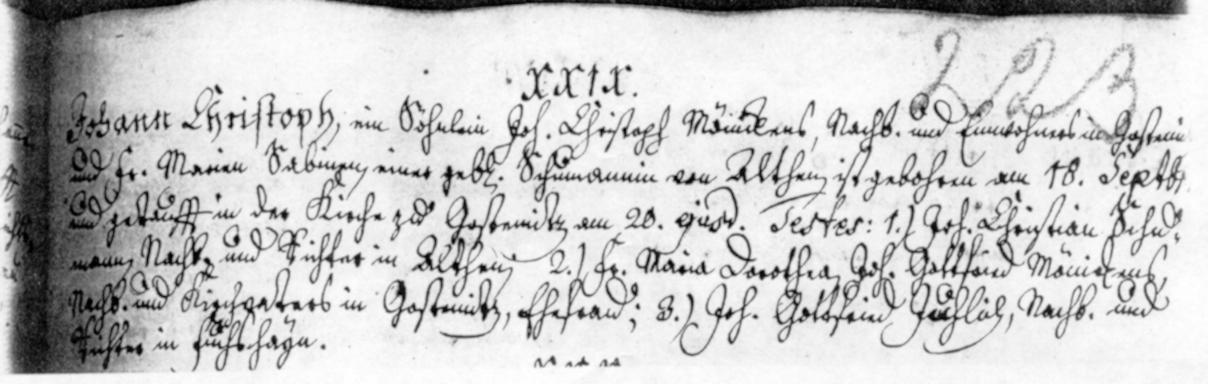 XXIX.
223
Johann Christoph, ein Söhnlein Joh. Christoph Möinckens, Nachb. und Einwohners in
und Fr. Marien Sabinen, einer geb. Schumannin von Althen, ist gebohren am 18. Septbr.
und getaufft in der Kirche zu Gostemitz am 20. ejusd. Testes: 1.) Joh. Christian Schu-
mann, Nachb. und Richter in Althen; 2.) Fr. Maria Dorothea, Joh. Gottfried Möinckens,
Nachb. und Kirchvaters in Gostemitz, Ehefrau; 3.) Joh. Gottfried, Nachb. und
Richter in